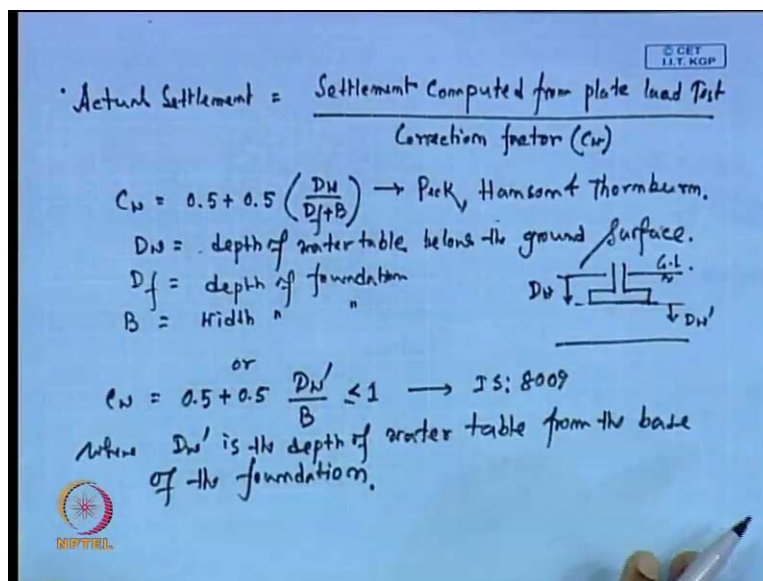 © CET
I.I.T. KGP
• Actual Settlement = Settlement Computed from plate load Test
Correction factor (Cw)
Cw = 0.5 + 0.5 (Dw / Df+B) → Peck, Hamsom & Thornburn.
Dw = depth of water table below the ground surface.
Df = depth of foundation
B = Width " "
G.L.
Dw
Dw'
or
Cw = 0.5 + 0.5 Dw' / B ≤ 1 → IS: 8009
where Dw' is the depth of water table from the base
of the foundation.
NPTEL